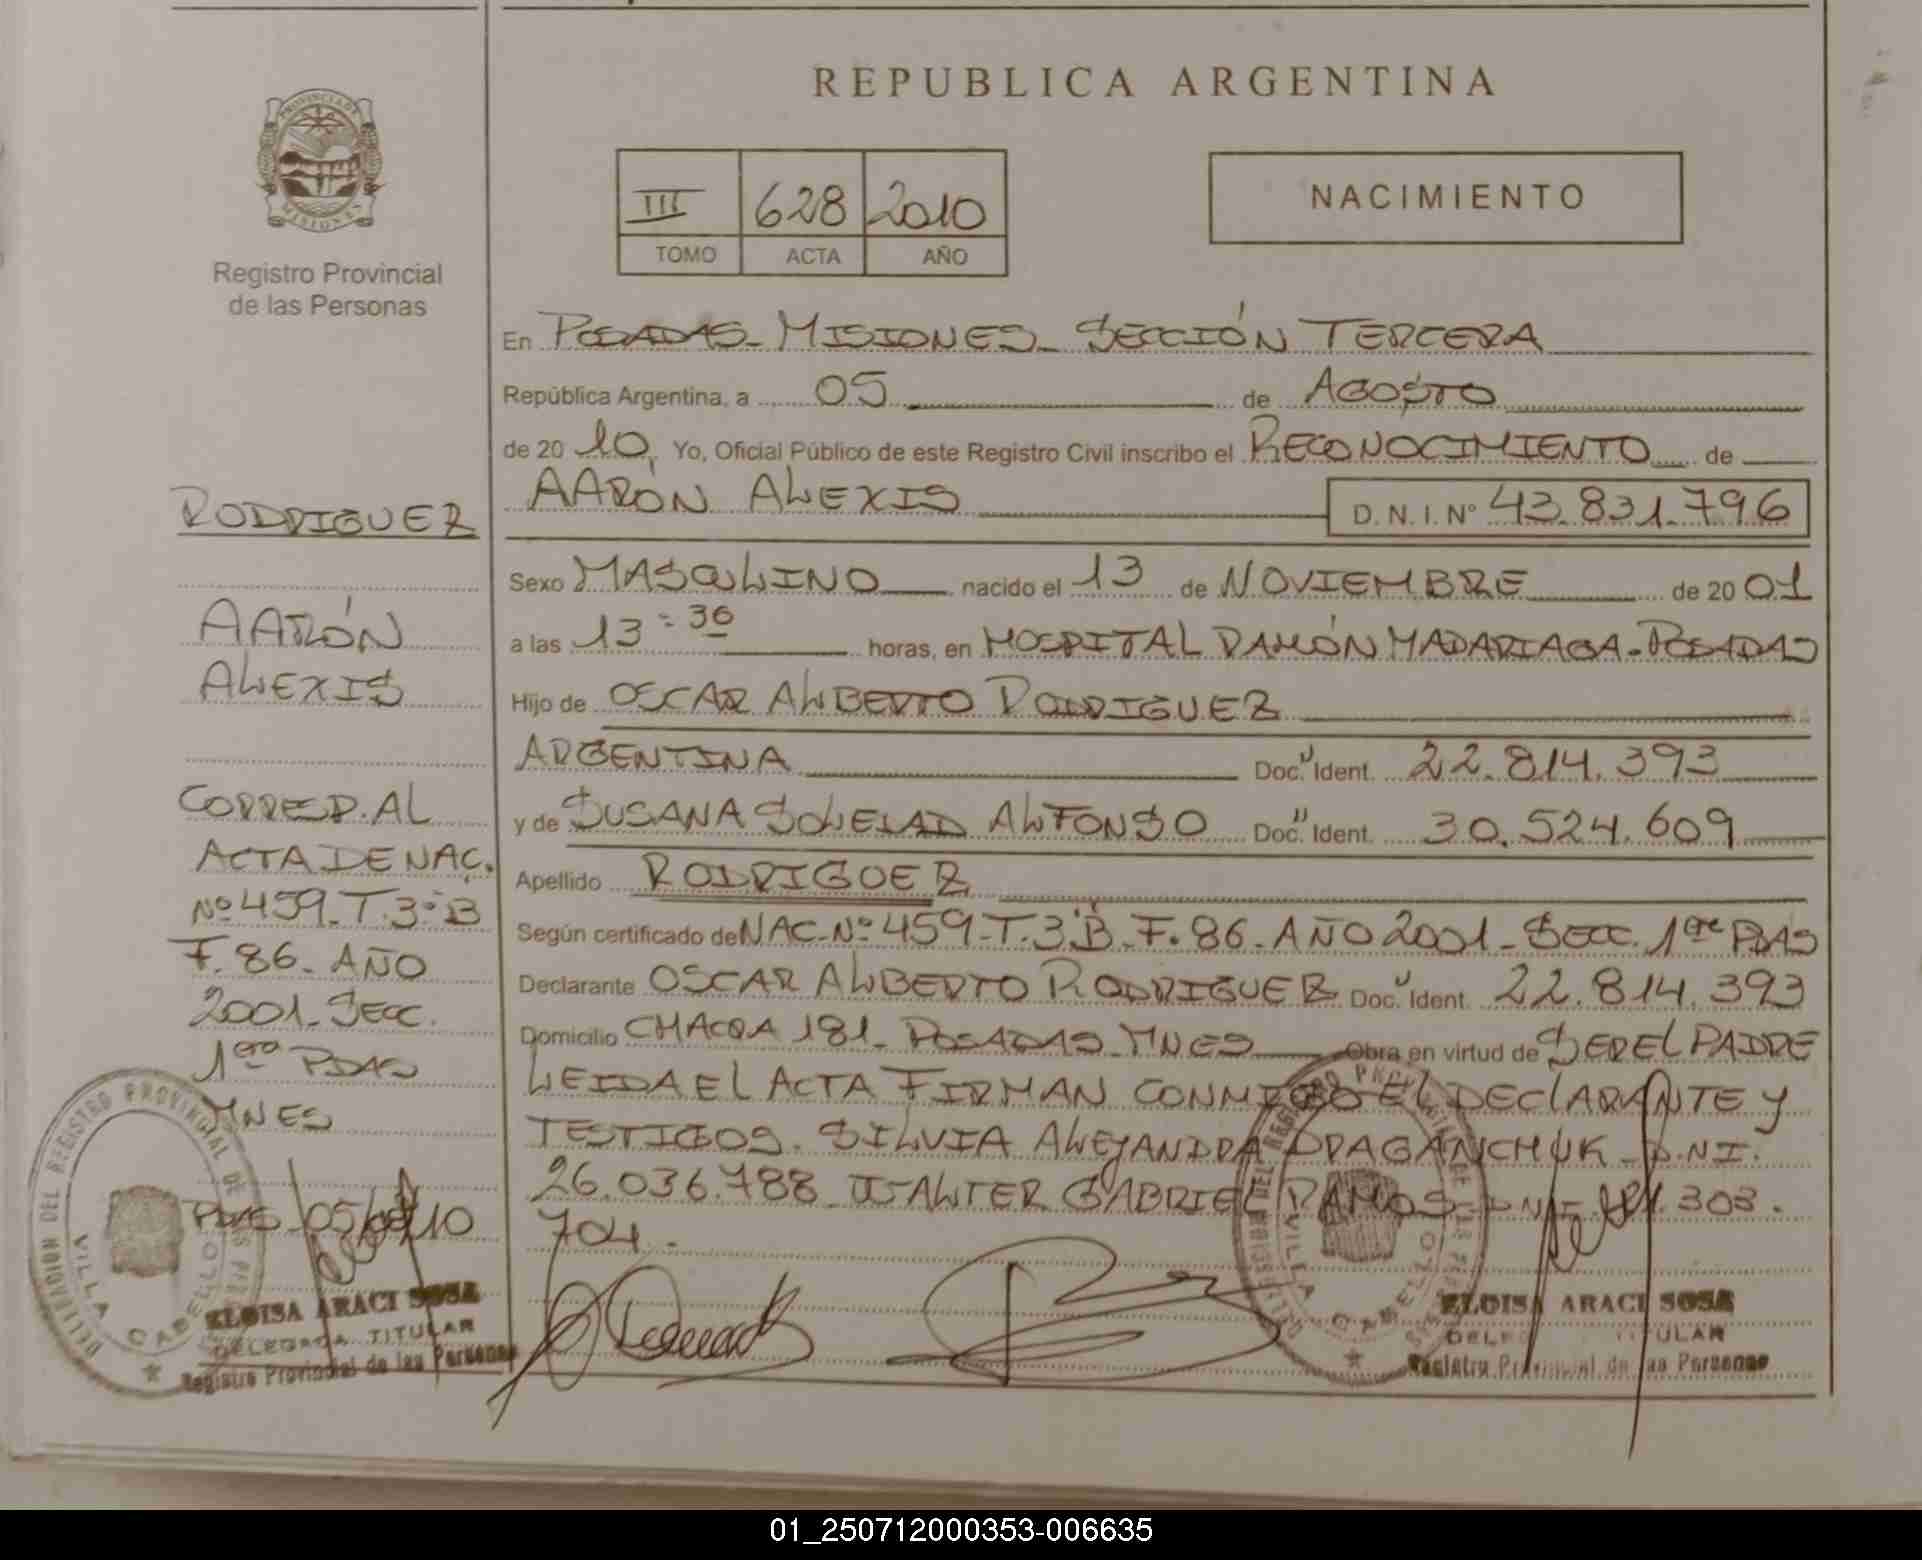 REPUBLICA ARGENTINA
PROVINCIA DE
MISIONES
Registro Provincial
de las Personas
III 628 2010
TOMO ACTA AÑO
NACIMIENTO
En POSADAS - MISIONES - SECCIÓN TERCERA
República Argentina, a 05 de AGOSTO
de 20 10, Yo, Oficial Público de este Registro Civil inscribo el RECONOCIMIENTO de
AARÓN ALEXIS D. N. I. Nº 43.831.796
Sexo MASCULINO nacido el 13 de NOVIEMBRE de 20 01
a las 13:30 horas, en HOSPITAL RAMÓN MADARIAGA - POSADAS
Hijo de OSCAR ALBERTO RODRIGUEZ
ARGENTINA Doc. Ident. 22.814.393
y de SUSANA SOLEDAD ALFONSO Doc. Ident. 30.524.609
Apellido RODRIGUEZ
Según certificado de NAC. Nº 459 - T. 3º B - F. 86 - AÑO 2001 - SECC. 1ra PDAS
Declarante OSCAR ALBERTO RODRIGUEZ Doc. Ident. 22.814.393
Domicilio CHACRA 181 - POSADAS - MNES Obra en virtud de SER EL PADRE
LEIDA EL ACTA FIRMAN CONMIGO EL DECLARANTE Y
TESTIGOS. SILVIA ALEJANDRA DRAGANCHUK - D.N.I.
26.036.788 - WALTER GABRIEL RAMOS - DNI 303.
704.
RODRIGUEZ
AARÓN
ALEXIS
CORRESP. AL
ACTA DE NAC.
Nº 459 - T. 3º B
F. 86 - AÑO
2001 - SECC.
1era PDAS
MNES
PDAS - 05/08/10
DELEGACION DEL REGISTRO PROVINCIAL DE LAS PERSONAS
VILLA CABELLO
ELOISA ARACI SOSA
DELEGADA TITULAR
Registro Provincial de las Personas
DELEGACION DEL REGISTRO PROVINCIAL DE LAS PERSONAS
VILLA CABELLO
ELOISA ARACI SOSA
DELEGADA TITULAR
Registro Provincial de las Personas
01_250712000353-006635